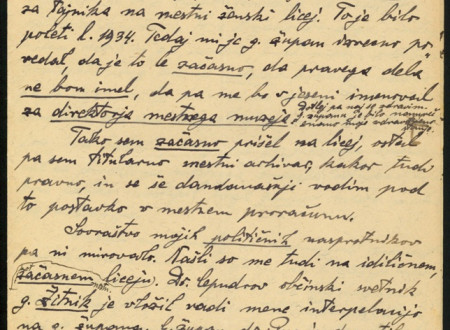 za tajnika na mestni ženski licej. To je bilo
poleti l. 1934. Tedaj mi je g. župan izrecno po-
vedal, da je to le začasno, da pravega dela
ne bom imel, da pa me bo v jeseni imenoval
za direktorja mestnega muzeja.
Dotlej pa naj se zdravim.
g. županu je bilo namreč
znano moje zdravstveno
Tako sem začasno prišel na licej, ostal
pa sem titularno mestni arhivar, kakor tudi
pravno, in se še dandanašnji vodim pod
to postavko v mestnem proračunu.
Sovraštvo mojih političnih nasprotnikov
pa ni mirovalo. Našli so me tudi na idiličnem,
začasnem liceju. Dr. občinski svetnik
g. Žitnik je vložil radi mene interpelacijo
na g. župana